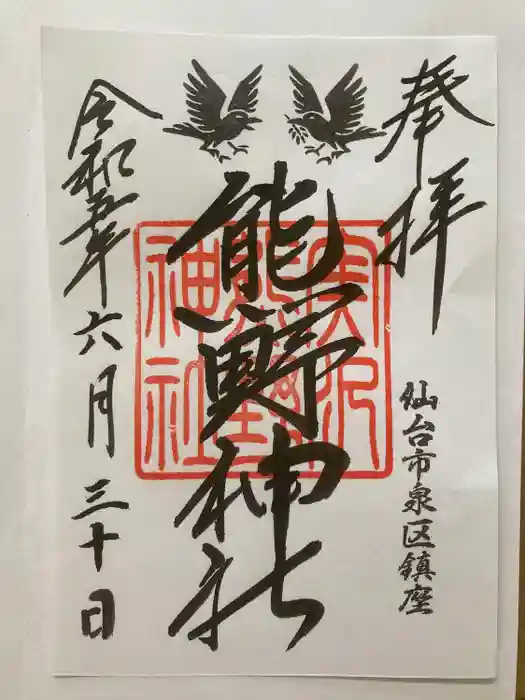 奉拝
仙台市泉区鎮座
熊野神社
実沢熊野神社
令和五年六月三十日